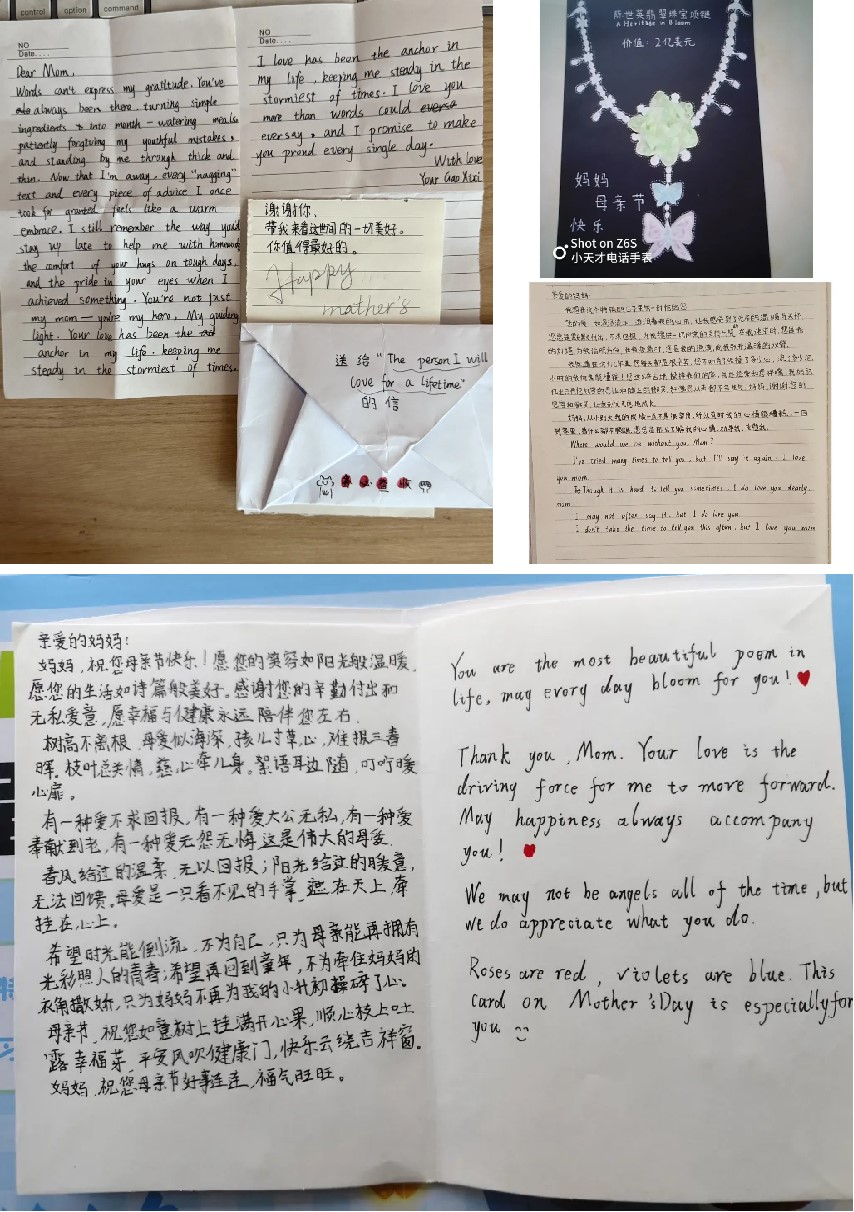 control
option
command
NO
Date
Dear Mom,
Words can't express my gratitude. You've
always been there turning simple
ingredients into month - watering meals,
patiently forgiving my youthful mistakes,
and standing by me through thick and
thin. Now that I'm away, every "nagging"
text and every piece of advice I once
took for granted feels like a warm
embrace. I still remember the way you'd
stay up late to help me with homework
the comfort of your hugs on tough days,
and the pride in your eyes when I
achieved something. You're not just
my mom — you're my hero. My guiding
light. Your love has been the
anchor in my life. keeping me
steady in the stormiest of times.
NO
Date
I love has been the anchor in
my life, keeping me steady in the
stormiest of times. I love you
more than words could evers
ever say, and I promise to make
you proud every single day.
With love
Your Gao Xixi
谢谢你,
带我来看这世间的一切美好。
你值得最好的。
Happy
mather's
送给 "The person I will
love for a lifetime"
的信
查收
陈世英翡翠珠宝项链
A Heritage in Bloom
价值:2亿美元
妈妈
母亲节
快乐
Shot on Z6S
小天才电话手表
亲爱的妈妈:
Where would we be without you, Mom?
I've tried many times to tell you, but I'll say it again. I love
you mom.
Though it is hard to tell you sometimes, I do love you dearly,
mom
I may not often say it, but I do love you.
I don't take the time to tell you this often, but I love you mom
亲爱的妈妈:
妈妈,祝您母亲节快乐!愿您的笑容如阳光般温暖,
愿您的生活如诗篇般美好。感谢您的辛勤付出和
无私爱意,愿幸福与健康永远陪伴您左右.
树高不离根,母爱似海深,孩儿寸草心,难报三春
晖。枝叶总关情,慈心牵儿身。絮语耳边随,叮咛暖
心扉。
有一种爱不求回报,有一种爱大公无私,有一种爱
奉献到老,有一种爱无怨无悔,这是伟大的母爱.
春风给过的温柔,无以回报;阳光给过的暖意,
无法回馈。母爱是一只看不见的手掌,遮在天上,牵
挂在心上。
希望时光能倒流,不为自己,只为母亲能再拥有
光彩照人的青春;希望再回到童年,不为牵住妈妈的
衣角撒娇,只为妈妈不再为我的小升初操碎了心。
母亲节,祝您如意树上挂满开心果,顺心枝上吐
露幸福芽,平安风吹健康门,快乐云绕吉祥窗。
妈妈,祝您母亲节好事连连,福气旺旺。
You are the most beautiful poem in
life, may every day bloom for you!
Thank you, Mom. Your love is the
driving force for me to move forward.
May happiness always accompany
you!
We may not be angels all of the time, but
we do appreciate what you do.
Roses are red, violets are blue. This
card on Mother's Day is especially for
you